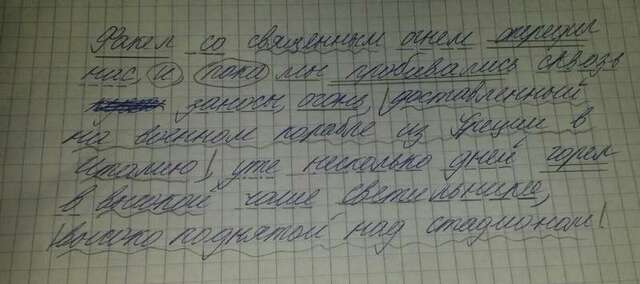 Факел со священным огнем опередил
нас, и пока мы пробивались сквозь
заносы, огонь, доставленный
на военном корабле из Греции в
Италию, уже несколько дней горел
в высокой чаше светильника,
высоко поднятой над стадионом.